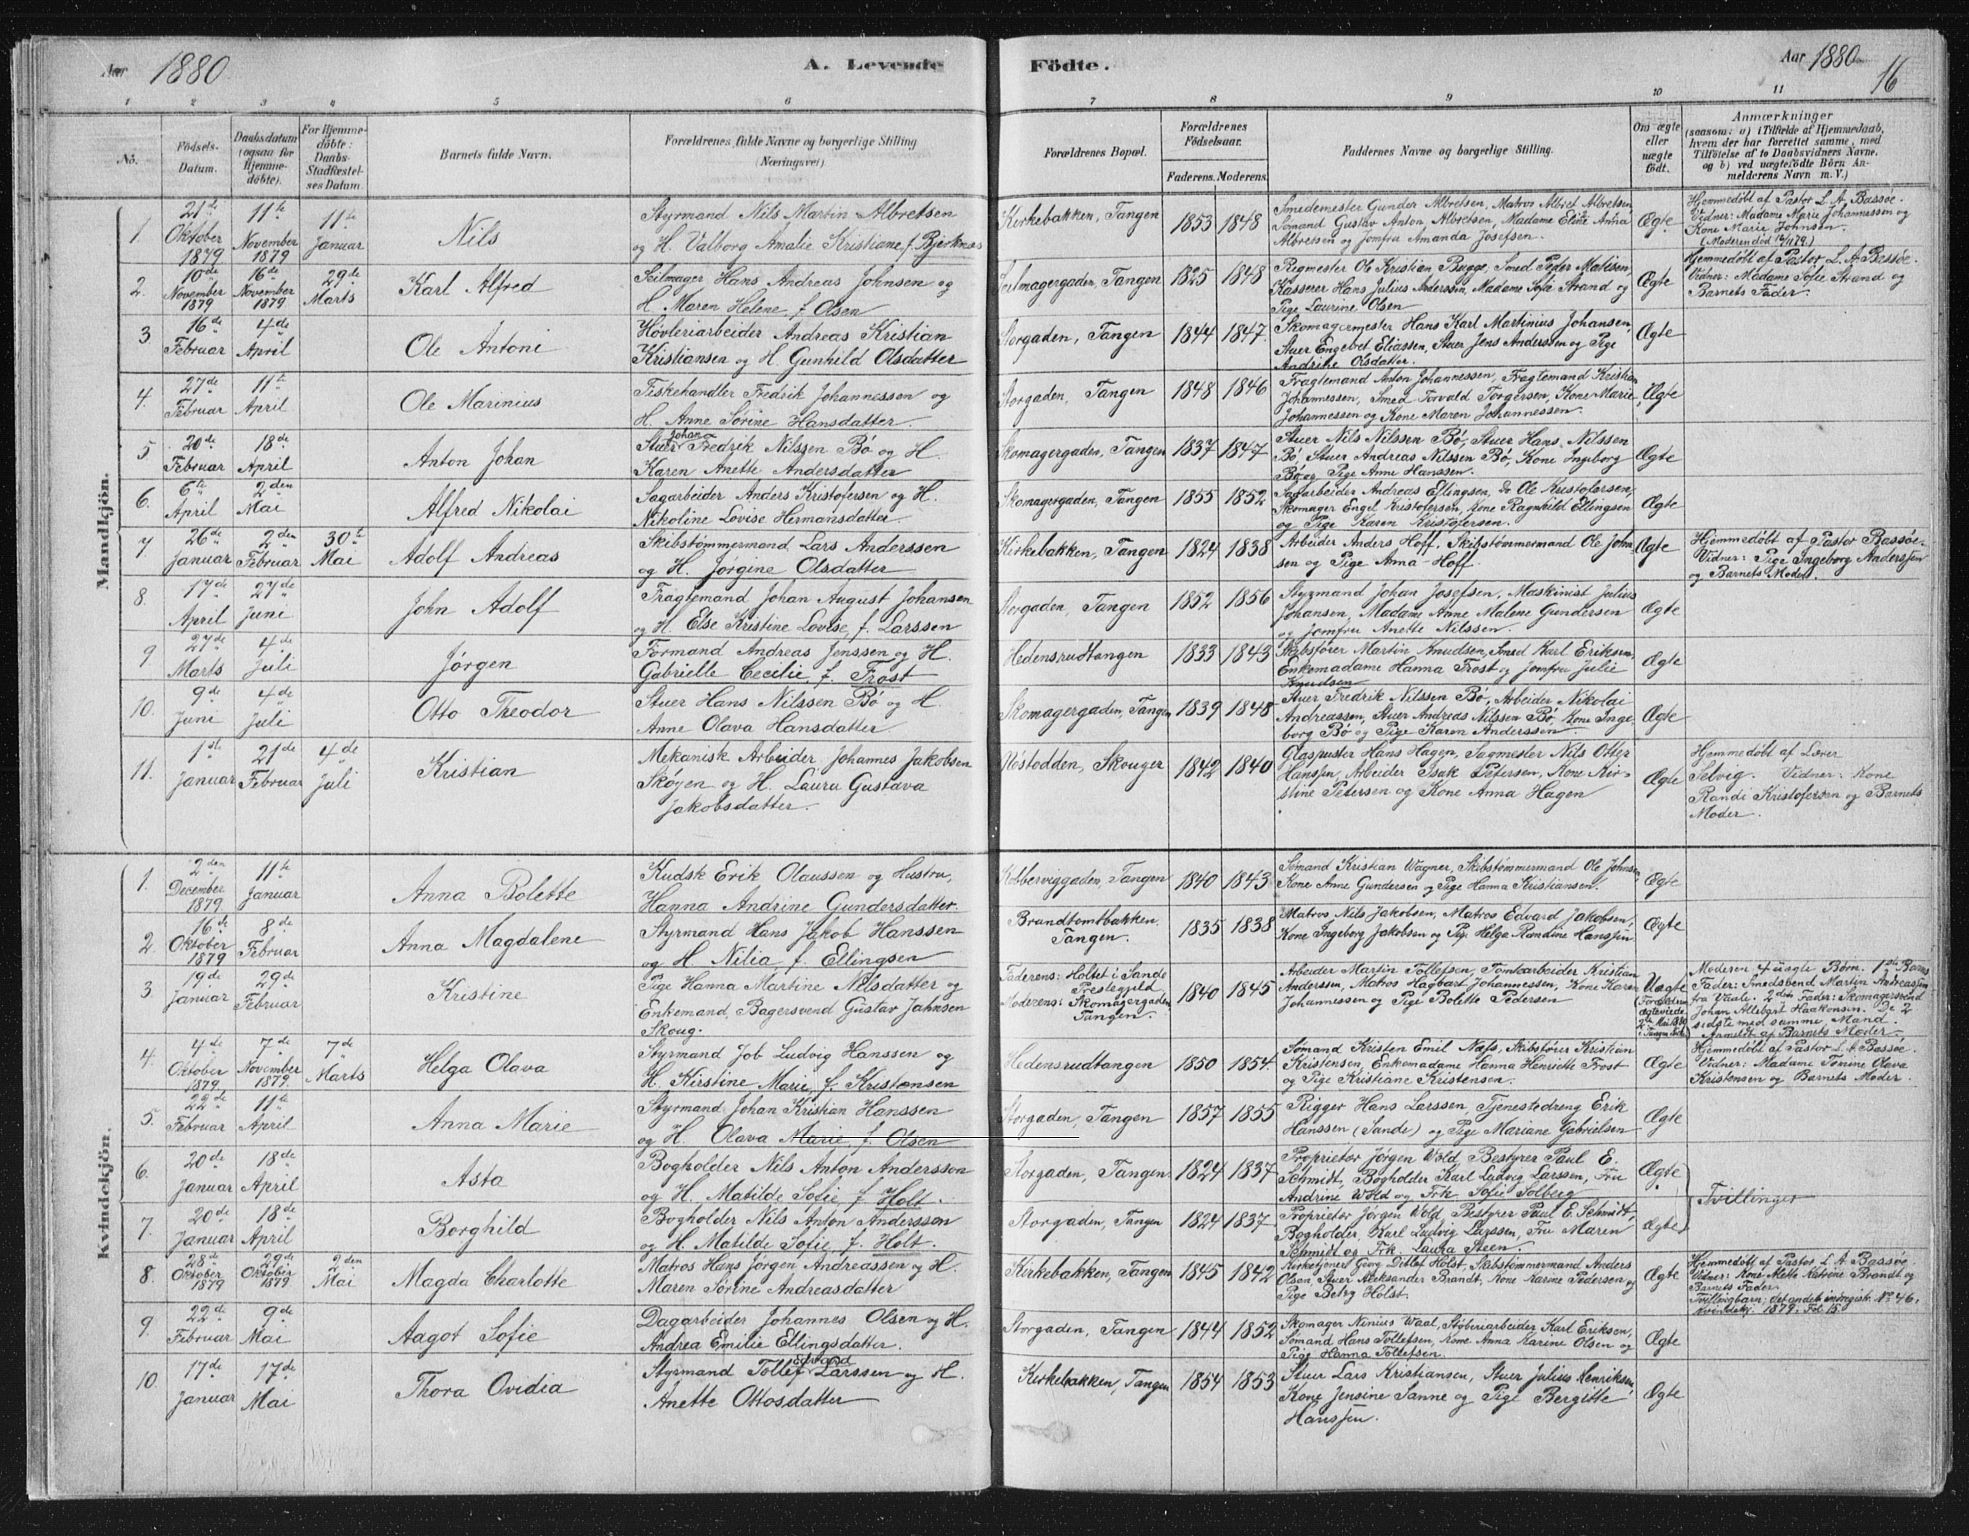 Aar 1880
A. Levende Födte.
Aar 1880
16
1 2 3 4 5 6 7 8 9 10 11
No.
Födsels-Datum.
Daabsdatum (ogsaa for Hjemme-döbte).
For Hjemme-döbte: Daabs-Stadfæstel-ses Datum.
Barnets fulde Navn.
Forældrenes fulde Navne og borgerlige Stilling (Næringsvei)
Forældrenes Bopæl.
Forældrenes Födselsaar.
Faderens. Moderens.
Faddernes Navne og borgerlige Stilling.
Om ægte eller uægte födt.
Anmærkninger
(saasom: a) i Tilfælde af Hjemmedaab,
hvem der har forrettet samme, med
Tilföielse af to Daabsvidners Navne.
og b) ved uægtefödte Börn An-
melderens Navn m. V.)
Mandkjön.
1. 21de Oktober 1879 11te November 1879 11te Januar
Nils
Styrmand Nils Martin Albretsen
og H. Valborg Amalie Kristiane f. Bjerknæs
Kirkebakken, Tangen 1853 1848
Smedemester Gunder Albretsen, Matros Albret Albretsen
Sømand Gustav Anton Albretsen, Madame Eline Anna
Albretsen og Jomfru Amanda Josefsen.
Ægte
Hjemmedøbt af Pastor L. A. Bassøe.
Vidner: Madame Marie Johannessen og
Kone Marie Johnsen.
(Moderen død 12/11 79.)
2. 10de November 1879 16de November 1879 29te Marts
Karl Alfred
Seilmager Hans Andreas Johnsen og
H. Maren Helene f. Olsen
Seilmagergaden, Tangen 1825 1848
Regmester Ole Kristian Bugge, Smed Peder Matisen,
Kasserer Hans Julius Anderssen, Madame Sofie Strand og
Pige Laurine Olsen
Ægte
Hjemmedøbt af Pastor L. A. Bassøe.
Vidner: Madame Sofie Strand og
Barnets Fader.
3 16de Februar 4de April
Ole Antoni
Høvleriarbeider Andreas Kristian
Kristiansen og H. Gunhild Olsdatter
Storgaden, Tangen 1844 1847.
Skomagermester Hans Karl Martinius Johansen,
Stuer Engebret Eliassen, Stuer Jens Anderssen og Pige
Andrike Olsdatter.
Ægte
4. 27de Februar 11te April
Ole Marinius
Fiskehandler Fredrik Johannessen og
H. Anne Sørine Hansdatter
Storgaden, Tangen 1848 1846
Fragtemand Anton Johannessen, Fragtemand Kristian
Johannessen, Smed Torvald Torgersen, Kone Marie
Johannessen og Kone Maren Johannessen.
Ægte
5 20de Februar 18de April
Anton Johan
Stuer Johan Fredrik Nilssen Bø og H.
Karen Anette Andersdatter
Skomagergaden, Tangen 1837 1847
Stuer Nils Nilssen Bø, Stuer Hans Nilssen
Bø, Stuer Andreas Nilssen Bø, Kone Ingeborg
Bø og Pige Anne Hanssen.
Ægte
6. 6te April 2den Mai
Alfred Nikolai
Sagarbeider Anders Kristofersen og H.
Nikoline Lovise Hermansdatter.
Skomagergaden, Tangen 1855 1852
Sagarbeider Andreas Ellingsen, Do Ole Kristofersen,
Skomager Engel Kristofersen, Kone Ragnhild Ellingsen
og Pige Karen Kristofersen.
Ægte
7 26de Januar 2den Februar 30te Mai
Adolf Andreas
Skibstømmermand Lars Anderssen
og H. Jørgine Olsdatter
Kirkebakken, Tangen 1824 1838
Arbeider Anders Hoff. Skibstømmermand Ole John-
sen og Pige Anna Hoff.
Ægte
Hjemmedøbt af Pastor Bassøe.
Vidner: Pige Ingeborg Anderssen
og Barnets Moder.
8. 17de April 27de Juni
John Adolf
Fragtemand Johan August Johansen
og H. Else Kristine Lovise f. Larssen
Storgaden, Tangen 1852 1856
Styrmand Johan Josefsen, Maskinist Julius
Johansen, Madame Anne Malene Gundersen
og Jomfru Anette Nilssen
Ægte
9 27de Marts 4de Juli
Jørgen
Formand Andreas Jenssen og H.
Gabrielle Cecilie f. Frost
Hedensrudtangen 1833 1843
Skibsfører Martin Knudsen, Smed Karl Eriksen,
Enkemadame Hanna Frost og Jomfru Julie
Knudsen
Ægte
10. 9de Juni 4de Juli
Otto Theodor
Stuer Hans Nilssen Bø og H.
Anne Olava Hansdatter
Skomagergaden, Tangen 1839 1848
Stuer Fredrik Nilssen Bø, Arbeider Nikolai
Andreassen, Stuer Andreas Nilssen Bø, Kone Inge-
borg Bø og Pige Karen Anderssen.
Ægte
11. 1ste Januar 21de Februar 4de Juli
Kristian
Mekanisk Arbeider Johannes Jakobsen
Skøyen og H. Laura Gustava
Jakobsdatter.
Nøstodden, Skouger 1842 1840
Glaspuster Hans Hagen, Sagmester Nils Otter
Hanssen, Arbeider Isak Petersen, Kone Kir-
stine Petersen og Kone Anna Hagen
Ægte
Hjemmedøbt af Lærer
Selvig. Vidner: Kone
Randi Kristofersen og Barnets
Moder.
Kvindekjön.
1. 2den December 1879 11te Januar
Anna Bolette
Kudsk Erik Olaussen og Hustru,
Hanna Andrine Gundersdatter.
Kobberviggaden, Tangen 1840 1843
Sømand Kristian Wagner, Skibstømmermand Ole Johnsen
Kone Anne Gundersen og Pige Hanna Kristiansen.
Ægte
2 16de Oktober 1879 8de Februar
Anna Magdalene
Styrmand Hans Jakob Hanssen
og H Nilia f. Ellingsen
Brandtomtbakken, Tangen. 1835 1838
Matros Nils Jakobsen, Matros Edvard Jakobsen,
Kone Ingeborg Jakobsen og Pige Helga Randine Hanssen
Ægte
3 19de Januar 29de Februar
Kristine
Pige Hanna Martine Nilsdatter og
Enkemand, Bagersvend Gustav Jahnsen
Skoug.
Faderens: Holtet i Sande
Prestegjeld
Moderens: Skomagergaden
Tangen.
1840 1845
Arbeider Martin Tollefsen, Tomtearbeider Kristian
Anderssen, Matros Hagbart Johannessen, Kone Karen
Johannessen og Pige Bolette Pedersen
Uægte
(Forældrene ægteviede 2de Mai 1880 i Tangen Kirke)
Moderen 4 uægte Børn. 1ste Barns
Fader: Smedsvend Martin Andreassen
fra Vaale. 2den Fader: Skomagersvend
Johan Allebart Haakonsen. De 2
sidste med samme Mand.
Anmeldt af Barnets Moder.
4. 4de Oktober 1879 7de November 1879 7de Marts
Helga Olava
Styrmand Job Ludvig Hanssen og
H. Kirstine Marie f. Kristensen
Hedensrudtangen 1850 1854.
Sømand Kristen Emil Næss, Skibsfører Kristian
Kristensen, Enkemadame Hanna Henriette Frost
og Pige Kristiane Kristensen.
Ægte
Hjemmedøbt af Pastor L. A. Bassøe.
Vidner: Madame Tomine Olava
Kristensen og Barnets Moder.
5. 22de Februar 11te April
Anna Marie
Styrmand Johan Kristian Hanssen
og H. Olava Marie f. Olsen
Storgaden, Tangen 1857 1855
Rigger Hans Larssen, Tjenestedreng Erik
Hanssen (Sande) og Pige Mariane Gabrielsen
Ægte
6. 20de Januar 18de April
Asta
Bogholder Nils Anton Andersson
og H. Matilde Sofie f. Holt.
Storgaden, Tangen 1824 1837
Proprietær Jørgen Wold, Bestyrer Paul E.
Schmidt, Bogholder Karl Ludvig Larssen, Fru
Andrine Wold og Frk. Sofie Solberg
Ægte.
Tvillinger
7. 20de Januar 18de April
Borghild
Bogholder Nils Anton Andersson
og H. Matilde Sofie f. Holt.
Storgaden, Tangen 1824 1837
Proprietær Jørgen Wold, Bestyrer Paul E. Schmidt,
Bogholder Karl Ludvig Larssen, Fru Maren
Schmidt og Frk. Laura Steen.
Ægte
8. 28de Oktober 1879 29de Oktober 1879 2den Mai
Magda Charlotte
Matros Hans Jørgen Andreassen og H.
Maren Sørine Andreasdatter
Kirkebakken, Tangen 1845 1842
Kirketjener Georg Ditlef Holst, Skibstømmermand Anders
Olsen, Stuer Aleksander Brandt, Kone Karine Pedersen og
Pige Betzy Holst.
Ægte
Hjemmedøbt af Pastor L. A. Bassøe
Vidner: Kone Mette Katrine Brandt og
Barnets Fader.
Tvillingbarn; det andet indregistr. No 46,
Kvindekj. 1879. Fol. 15.
9. 22de Februar 9de Mai
Aagot Sofie
Dagarbeider Johannes Olsen og H.
Andrea Emilie Ellingsdatter.
Storgaden, Tangen 1844 1852
Skomager Ninius Waal, Støberiarbeider Karl Eriksen,
Sømand Hans Tollefsen, Kone Anna Karine Olsen og
Pige Hanna Tollefsen.
Ægte
10. 17de Januar 17de Mai
Thora Ovidia
Styrmand Tollef Edvard Larssen og H.
Anette Ottosdatter
Kirkebakken, Tangen 1854 1853
Stuer Lars Kristiansen, Stuer Julius Henriksen,
Kone Jensine Sanne og Pige Bergitte
Hanssen.
Ægte